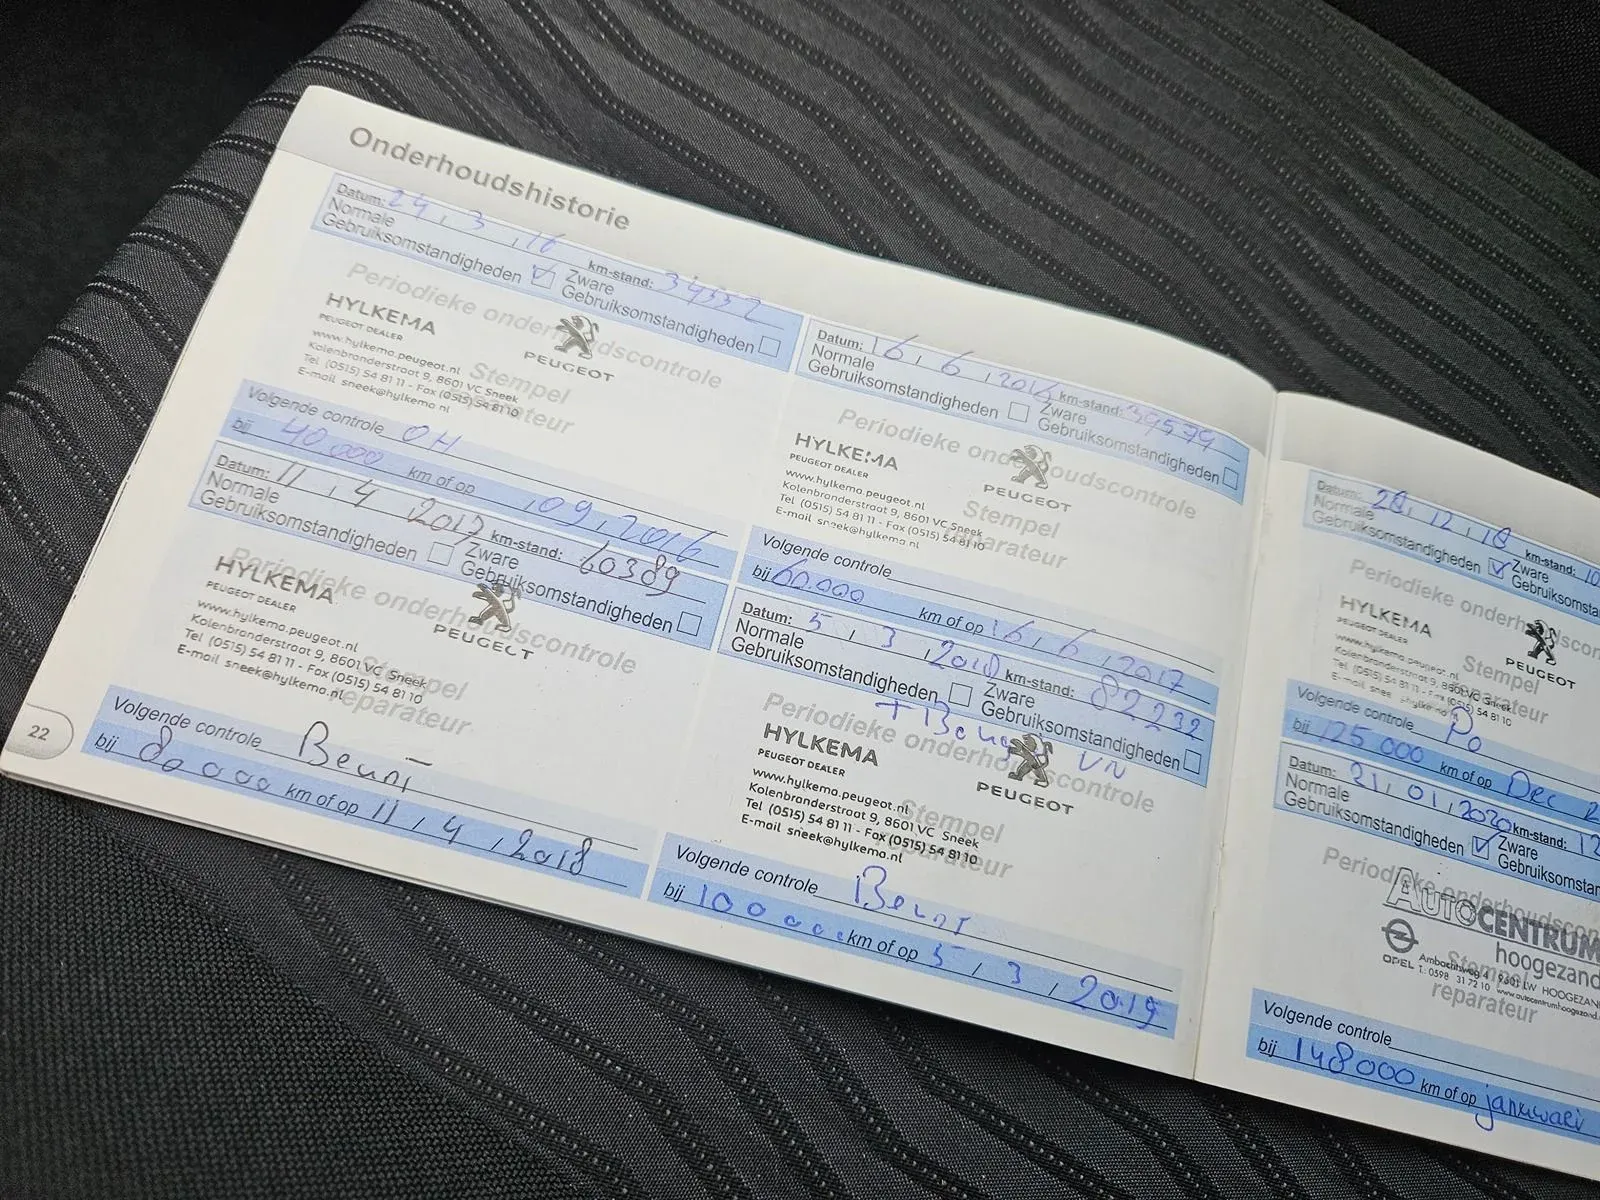 Onderhoudshistorie
Datum: 24 . 3 . 16 km-stand: 34557
Normale
Gebruiksomstandigheden ☑ Zware
Gebruiksomstandigheden ☐
Periodieke onderhoudscontrole
HYLKEMA
PEUGEOT DEALER
PEUGEOT
www.hylkema.peugeot.nl
Kolenbranderstraat 9, 8601 VC Sneek
Tel (0515) 54 81 11 - Fax (0515) 54 81 10
E-mail sneek@hylkema.nl
Stempel
reparateur
Volgende controle OH
bij 40.000 km of op 09 . 2016
Datum: 16 . 6 . 2016 km-stand: 39579
Normale
Gebruiksomstandigheden ☐ Zware
Gebruiksomstandigheden ☐
Periodieke onderhoudscontrole
HYLKEMA
PEUGEOT DEALER
PEUGEOT
www.hylkema.peugeot.nl
Kolenbranderstraat 9, 8601 VC Sneek
Tel (0515) 54 81 11 - Fax (0515) 54 81 10
E-mail sneek@hylkema.nl
Stempel
reparateur
Volgende controle
bij 60.000 km of op 16 . 6 . 2017
Datum: 11 . 4 2017 km-stand: 60389
Normale
Gebruiksomstandigheden ☐ Zware
Gebruiksomstandigheden ☐
Periodieke onderhoudscontrole
HYLKEMA
PEUGEOT DEALER
PEUGEOT
www.hylkema.peugeot.nl
Kolenbranderstraat 9, 8601 VC Sneek
Tel (0515) 54 81 11 - Fax (0515) 54 81 10
E-mail sneek@hylkema.nl
Stempel
reparateur
Volgende controle Beurt
bij 80000 km of op 11 . 4 . 2018
22
Datum: 5 . 3 . 2018 km-stand: 82232
Normale
Gebruiksomstandigheden ☐ Zware
Gebruiksomstandigheden ☐
Periodieke onderhoudscontrole
HYLKEMA
PEUGEOT DEALER
PEUGEOT
www.hylkema.peugeot.nl
Kolenbranderstraat 9, 8601 VC Sneek
Tel (0515) 54 81 11 - Fax (0515) 54 81 10
E-mail sneek@hylkema.nl
Stempel
reparateur
Volgende controle Beurt
bij 100000 km of op 5 . 3 . 2019
Datum: 28 . 12 . 18 km-stand: 10
Normale
Gebruiksomstandigheden ☑ Zware
Periodieke
HYLKEMA
PEUGEOT DEALER
PEUGEOT
www.hylkema.peugeot.nl
Kolenbranderstraat 9, 8601 VC Sneek
Tel (0515) 54 81 11 - Fax (0515) 54 81 10
Stempel
reparateur
Volgende controle
bij 125000 km of op Dec
Datum: 21 . 01 . 2020 km-stand: 12
Normale
Gebruiksomstandigheden ☑ Zware
Periodieke
AUTOCENTRUM
OPEL
Ambachtsweg 4
T.: 0598 31 72 10
Stempel
reparateur
Volgende controle
bij 148000 km of op januari